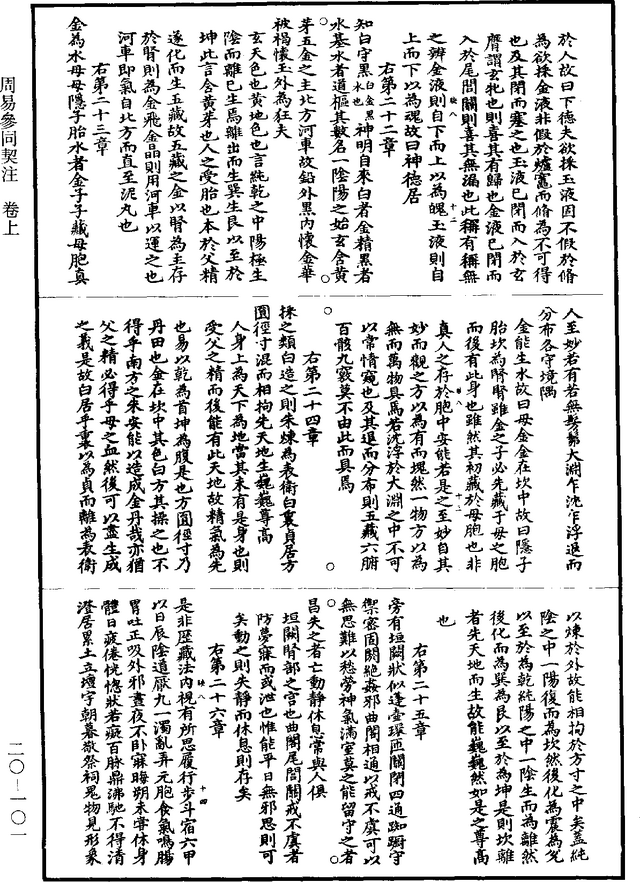 周易參同契注　卷上
二〇－一〇一
於人故曰下德夫欲採玉液固不假於脩
為欲採金液非假於爐竈而脩為不可得
也及其閉而塞之也玉液已閉而入於玄
膺謂玄牝也則喜其有歸也金液已閉而
入於尾閭關則喜其無漏也此稱有稱無
之辨金液則自下而上以為魄玉液則自
上而下以為魂故曰神德居
右第二十二章
知白守黑白金黑水也神明自來白者金精黑者
水基水者道樞其數名一陰陽之始玄含黃
芽五金之主北方河車故鉛外黑內懷金華
被褐懷玉外為狂夫
玄天色也黃地色也言純乾之中陽極生
陰而離已生焉離出而生巽生艮以至於
坤此言含黃芽也人之受胎也本於父精
遂化而生五藏故五藏之金以腎為主存
於腎則為金飛金晶則用河車以運之也
河車即氣自北方而直至泥丸也
右第二十三章
金為水母母隱子胎水者金子子藏母胞真
人至妙若有若無髣髴大淵乍沈乍浮退而
分布各守境隅
金能生水故曰母金金在坎中故曰隱子
胎坎為腎腎雖金之子必先藏于母之胞
而後有此身也雖然其初藏於母胞也非
真人之存於胞中安能若是之至妙自其
妙而觀之方以為有而塊然一物方以為
無而萬物具焉若沈浮於大淵之中不可
以常情窺也及其退而分布則五藏六腑
百骸九竅莫不由此而具焉
右第二十四章
採之類白造之則朱煉為表衛白裏貞居方
圓徑寸混而相拘先天地生巍巍尊高
人身上為天下為地當其未有是身也則
受父之精而後能有此天地故精氣為先
也易以乾為首坤為腹是也方圓徑寸乃
丹田也金在坎中其色白方其採之也不
得乎南方之朱安能以造成金丹哉亦猶
父之精必得乎母之血然後可以益生成
之義是故白居乎裏以為貞而離為表衛
以煉於外故能相拘於方寸之中矣蓋純
陰之中一陽復而為坎然後化為震為兌
以至於為乾純陽之中一陰生而為離然
後化而為巽為艮以至於為坤是則坎離
者先天地而生故能巍巍然如是之尊高
也
右第二十五章
旁有垣闕狀似蓬壺環匝關閉四通踟躕守
禦密固闕絕姦邪曲閣相通以戒不虞可以
無思難以愁勞神氣滿室莫之能留守之者
昌失之者亡動靜休息常與人俱
垣闕腎部之宮也曲閣尾閭關戒不虞者
防夢寐而或泄也惟能平日無邪思則可
矣動之則失靜而休息則存矣
右第二十六章
是非歷藏法內視有所思履行步斗宿六甲
以日辰陰道厭九一濁亂弄元胞食氣鳴腸
胃吐正吸外邪晝夜不卧寐晦朔未嘗休身
體日疲倦恍惚狀若癡百脉鼎沸馳不得清
澄居累土立壇宇朝暮敬祭祠鬼物見形象